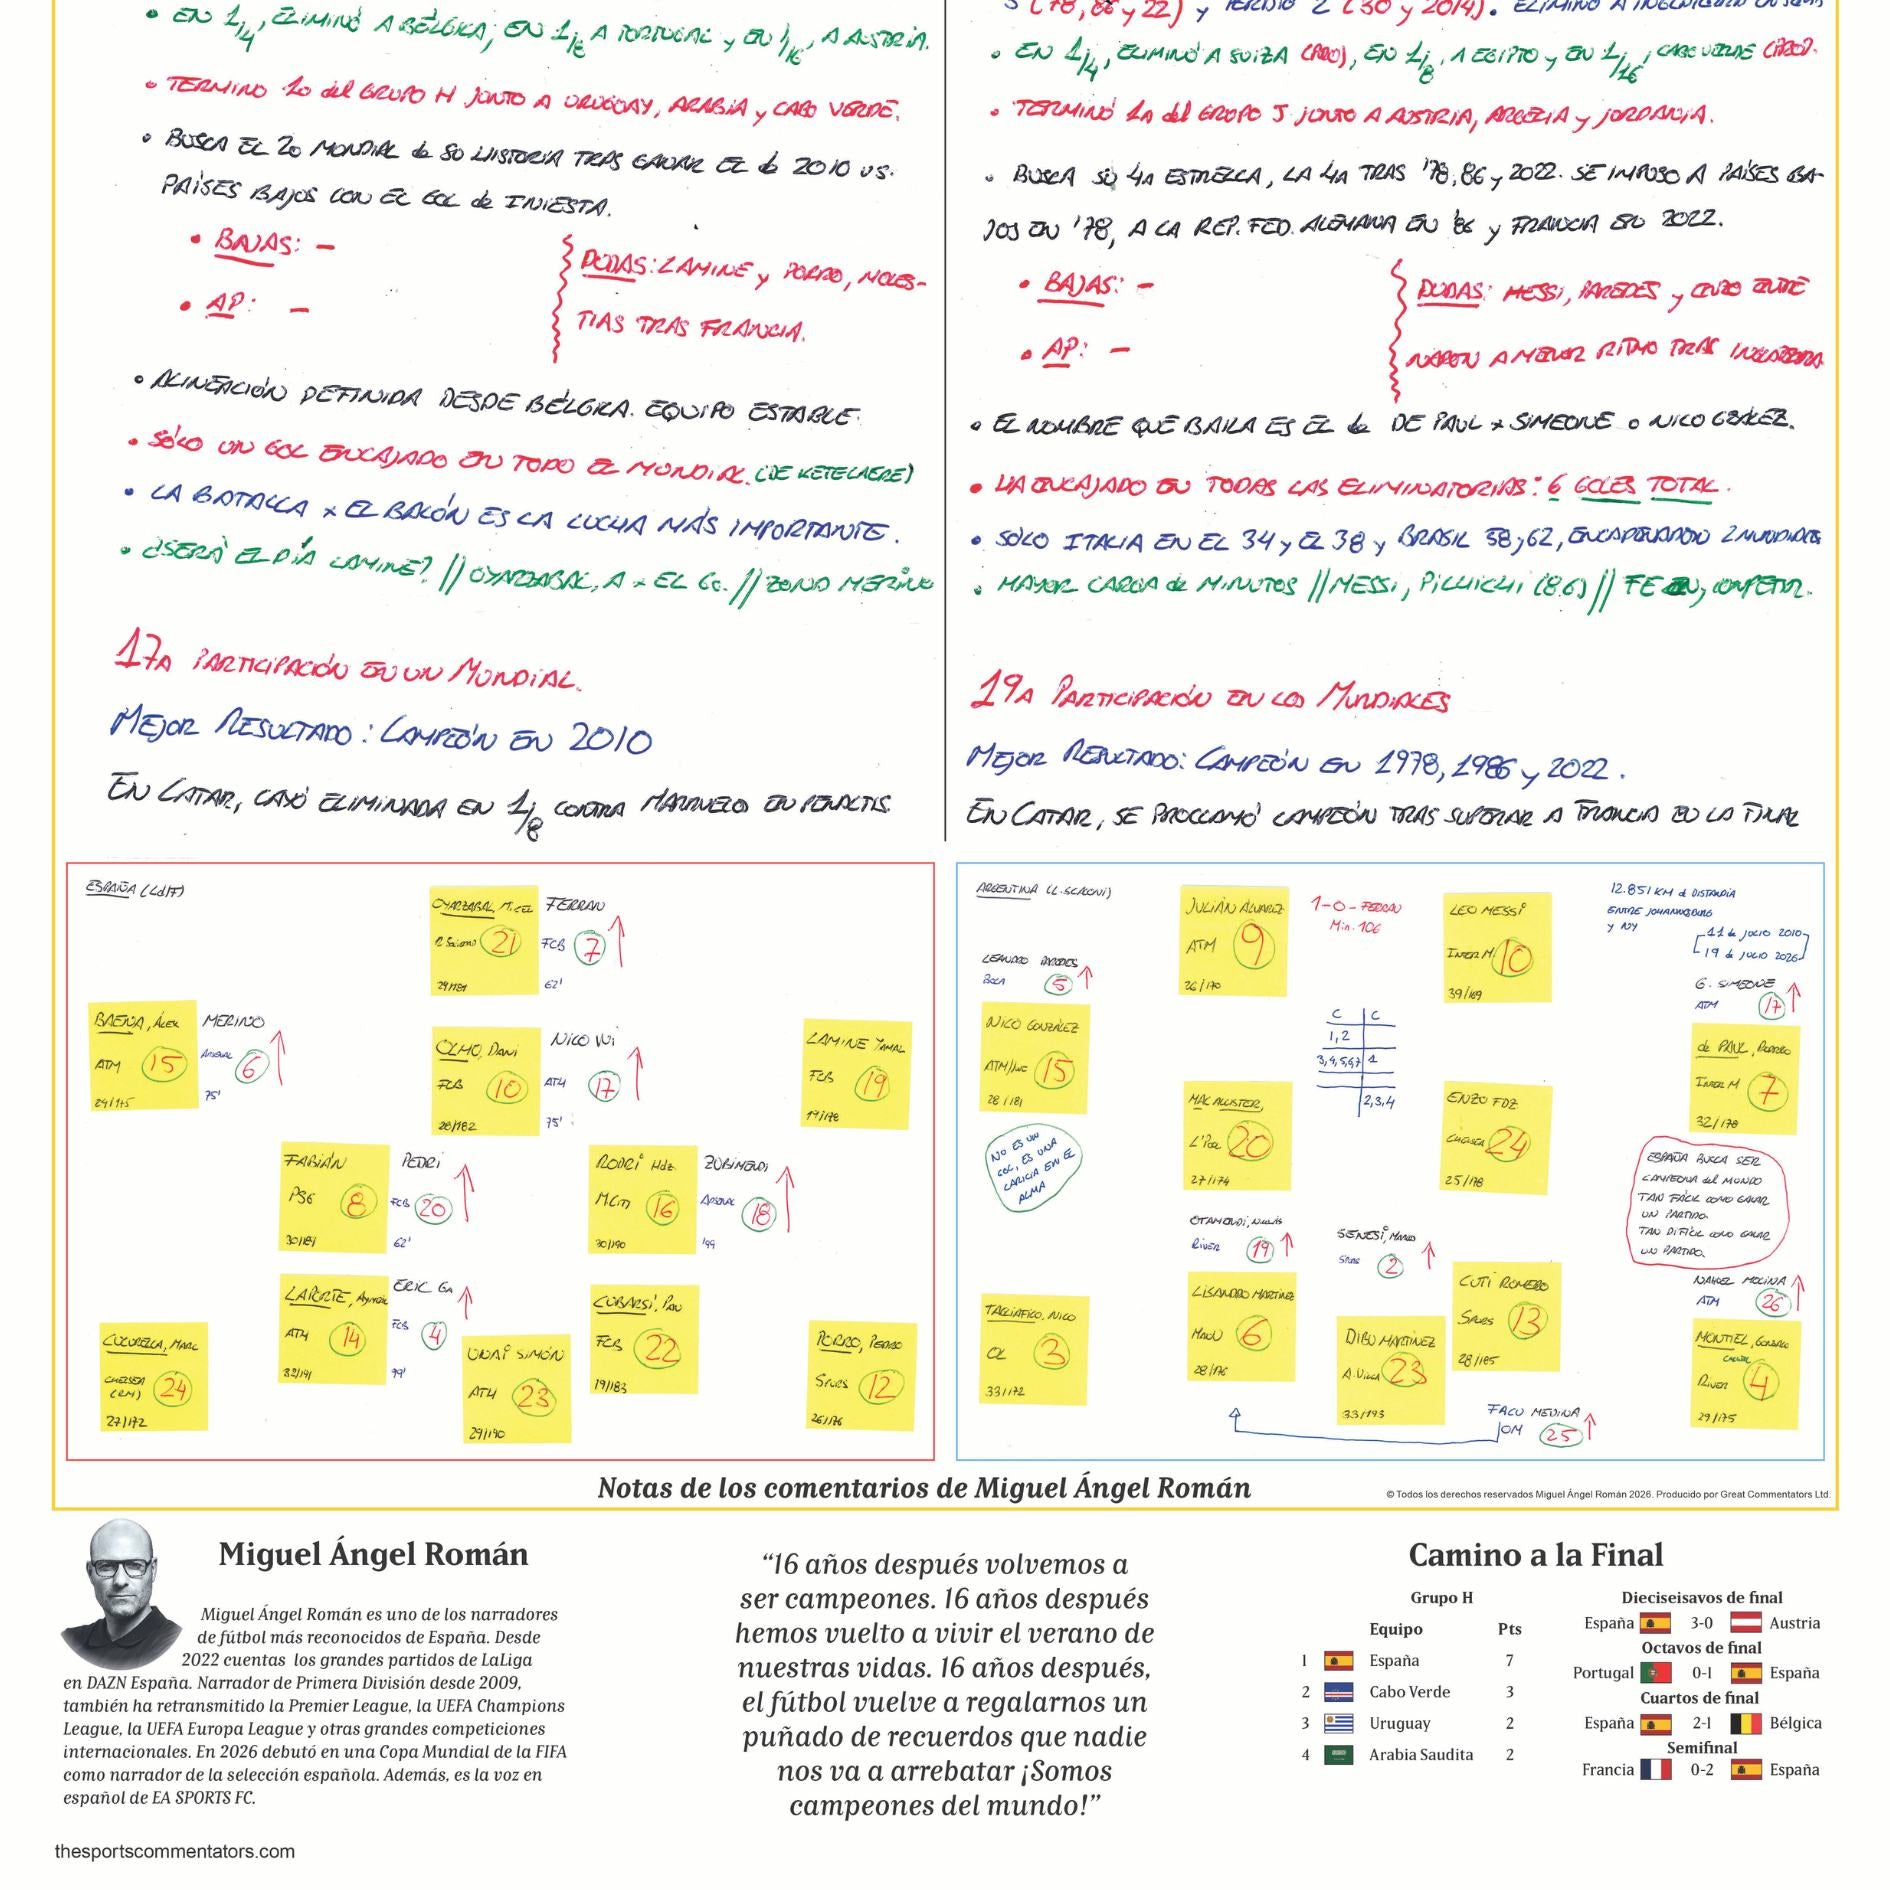 • EN 1/4, ELIMINÓ A BÉLGICA; EN 1/8 A PORTUGAL y EN 1/16, A AUSTRIA.
• TERMINO 1o del GRUPO H JUNTO A URUGUAY, ARABIA y CABO VERDE.
• BUSCA EL 2o MONDIAL de SU HISTORIA TRAS GANAR EL de 2010 VS.
PAÍSES BAJOS CON EL GOL de INIESTA.
• BAJAS: -
• AP: -
DUDAS: LAMINE y PORRO, MOLES-
TIAS TRAS FRANCIA.
• ALINEACIÓN DEFINIDA DESDE BÉLGICA. EQUIPO ESTABLE.
• SÓLO UN GOL ENCAJADO EN TODO EL MUNDIAL. (DE KETELAERE)
• LA BATALLA x EL BALÓN ES LA LUCHA MÁS IMPORTANTE.
• ¿SERÁ EL DÍA LAMINE? // OYARZABAL, A x EL 6o. // ZONA MERINO
17A PARTICIPACIÓN EN UN MUNDIAL.
MEJOR RESULTADO: CAMPEÓN EN 2010
EN CATAR, CAYÓ ELIMINADA EN 1/8 CONTRA MARRUECOS EN PENALTIS.
3 (78, 86 y 22) y PERDIÓ 2 (30 y 2014). ELIMINÓ A INGLATERRA EN SEMIS
• EN 1/4, ELIMINÓ A SUIZA (PRO), EN 1/8, A EGIPTO y EN 1/16, CABO VERDE (PRO).
• TERMINÓ 1a del GRUPO J JUNTO A AUSTRIA, ARGELIA y JORDANIA.
• BUSCA SU 4A ESTRELLA, LA 4A TRAS '78, 86 y 2022. SE IMPUSO A PAÍSES BA-
JOS EN '78, A LA REP. FED. ALEMANA EN '86 y FRANCIA EN 2022.
• BAJAS: -
• AP: -
DUDAS: MESSI, PAREDES y ENZO ENTRE
NARON A MENOR RITMO TRAS INGLATERRA
• EL NOMBRE QUE BAILA ES EL de DE PAUL x SIMEONE o NICO GZALEZ.
• HA ENCAJADO EN TODAS LAS ELIMINATORIAS: 6 GOLES TOTAL.
• SÓLO ITALIA EN EL 34 y EL 38 y BRASIL 58 y 62, ENCADENARON 2 MUNDIALES
• MAYOR CARGA de MINUTOS // MESSI, PICHICHI (8G) // FE EN, COMPETIR.
19A PARTICIPACIÓN EN LOS MUNDIALES
MEJOR RESULTADO: CAMPEÓN EN 1978, 1986 y 2022.
EN CATAR, SE PROCLAMÓ CAMPEÓN TRAS SUPERAR A FRANCIA EN LA FINAL
ESPAÑA (LdlF)
OYARZABAL, MIKEL
R. Sociedad 21
29/181
FERRAN
FCB 7
62'
BAENA, ÁLEX
ATM 15
24/175
MERINO
ARSENAL 6
75'
OLMO, DANI
FCB 10
28/182
NICO WI
ATH 17
75'
LAMINE YAMAL
FCB 19
19/178
FABIÁN
PSG 8
30/189
PEDRI
FCB 20
62'
RODRI Hdz.
M.CITY 16
30/190
ZUBIMENDI
ARSENAL 18
'99
LAPORTE, Aymeric
ATH 14
32/191
ERIC GA
FCB 4
99'
CUBARSÍ, PAU
FCB 22
19/183
CUCURELLA, MARC
CHELSEA
(RM) 24
27/172
UNAI SIMÓN
ATH 23
29/190
PORRO, PEDRO
SPURS 12
26/176
ARGENTINA (L. SCALONI)
JULIÁN ÁLVAREZ
ATM 9
26/170
1-0-FERRAN
Min. 106
LEO MESSI
INTER M. 10
39/169
12.851 KM d DISTANCIA
ENTRE JOHANNESBURG
y NY
11 de JULIO 2010
19 de JULIO 2026
LEANDRO PAREDES
BOCA 5
NICO GONZÁLEZ
ATM/JUVE 15
28/181
G. SIMEONE
ATM 17
C C
1,2
3,4,5,6,7 1
2,3,4
de PAUL, RODRIGO
INTER M 7
32/178
MAC ALLISTER,
L'POOL 20
27/174
ENZO FDZ
CHELSEA 24
25/178
NO ES UN
GOL, ES UNA
CARICIA EN EL
ALMA
ESPAÑA BUSCA SER
CAMPEONA del MUNDO
TAN FÁCIL COMO GANAR
UN PARTIDO.
TAN DIFÍCIL COMO GANAR
UN PARTIDO.
OTAMENDI, NICOLÁS
RIVER 19
SENESI, MARCOS
SPURS 2
NAHUEL MOLINA
ATM 26
TAGLIAFICO, NICO
OL 3
33/172
LISANDRO MARTÍNEZ
ManU 6
28/176
DIBU MARTÍNEZ
A. VILLA 23
33/193
CUTI ROMERO
SPURS 13
28/185
MONTIEL, GONZALO
RIVER 4
29/175
FACU MEDINA
OM 25
Notas de los comentarios de Miguel Ángel Román
© Todos los derechos reservados Miguel Ángel Román 2026. Producido por Great Commentators Ltd.
Miguel Ángel Román
Miguel Ángel Román es uno de los narradores
de fútbol más reconocidos de España. Desde
2022 cuentas los grandes partidos de LaLiga
en DAZN España. Narrador de Primera División desde 2009,
también ha retransmitido la Premier League, la UEFA Champions
League, la UEFA Europa League y otras grandes competiciones
internacionales. En 2026 debutó en una Copa Mundial de la FIFA
como narrador de la selección española. Además, es la voz en
español de EA SPORTS FC.
thesportscommentators.com
“16 años después volvemos a
ser campeones. 16 años después
hemos vuelto a vivir el verano de
nuestras vidas. 16 años después,
el fútbol vuelve a regalarnos un
puñado de recuerdos que nadie
nos va a arrebatar ¡Somos
campeones del mundo!”
Camino a la Final
Grupo H
Equipo Pts
1 España 7
2 Cabo Verde 3
3 Uruguay 2
4 Arabia Saudita 2
Dieciseisavos de final
España 3-0 Austria
Octavos de final
Portugal 0-1 España
Cuartos de final
España 2-1 Bélgica
Semifinal
Francia 0-2 España